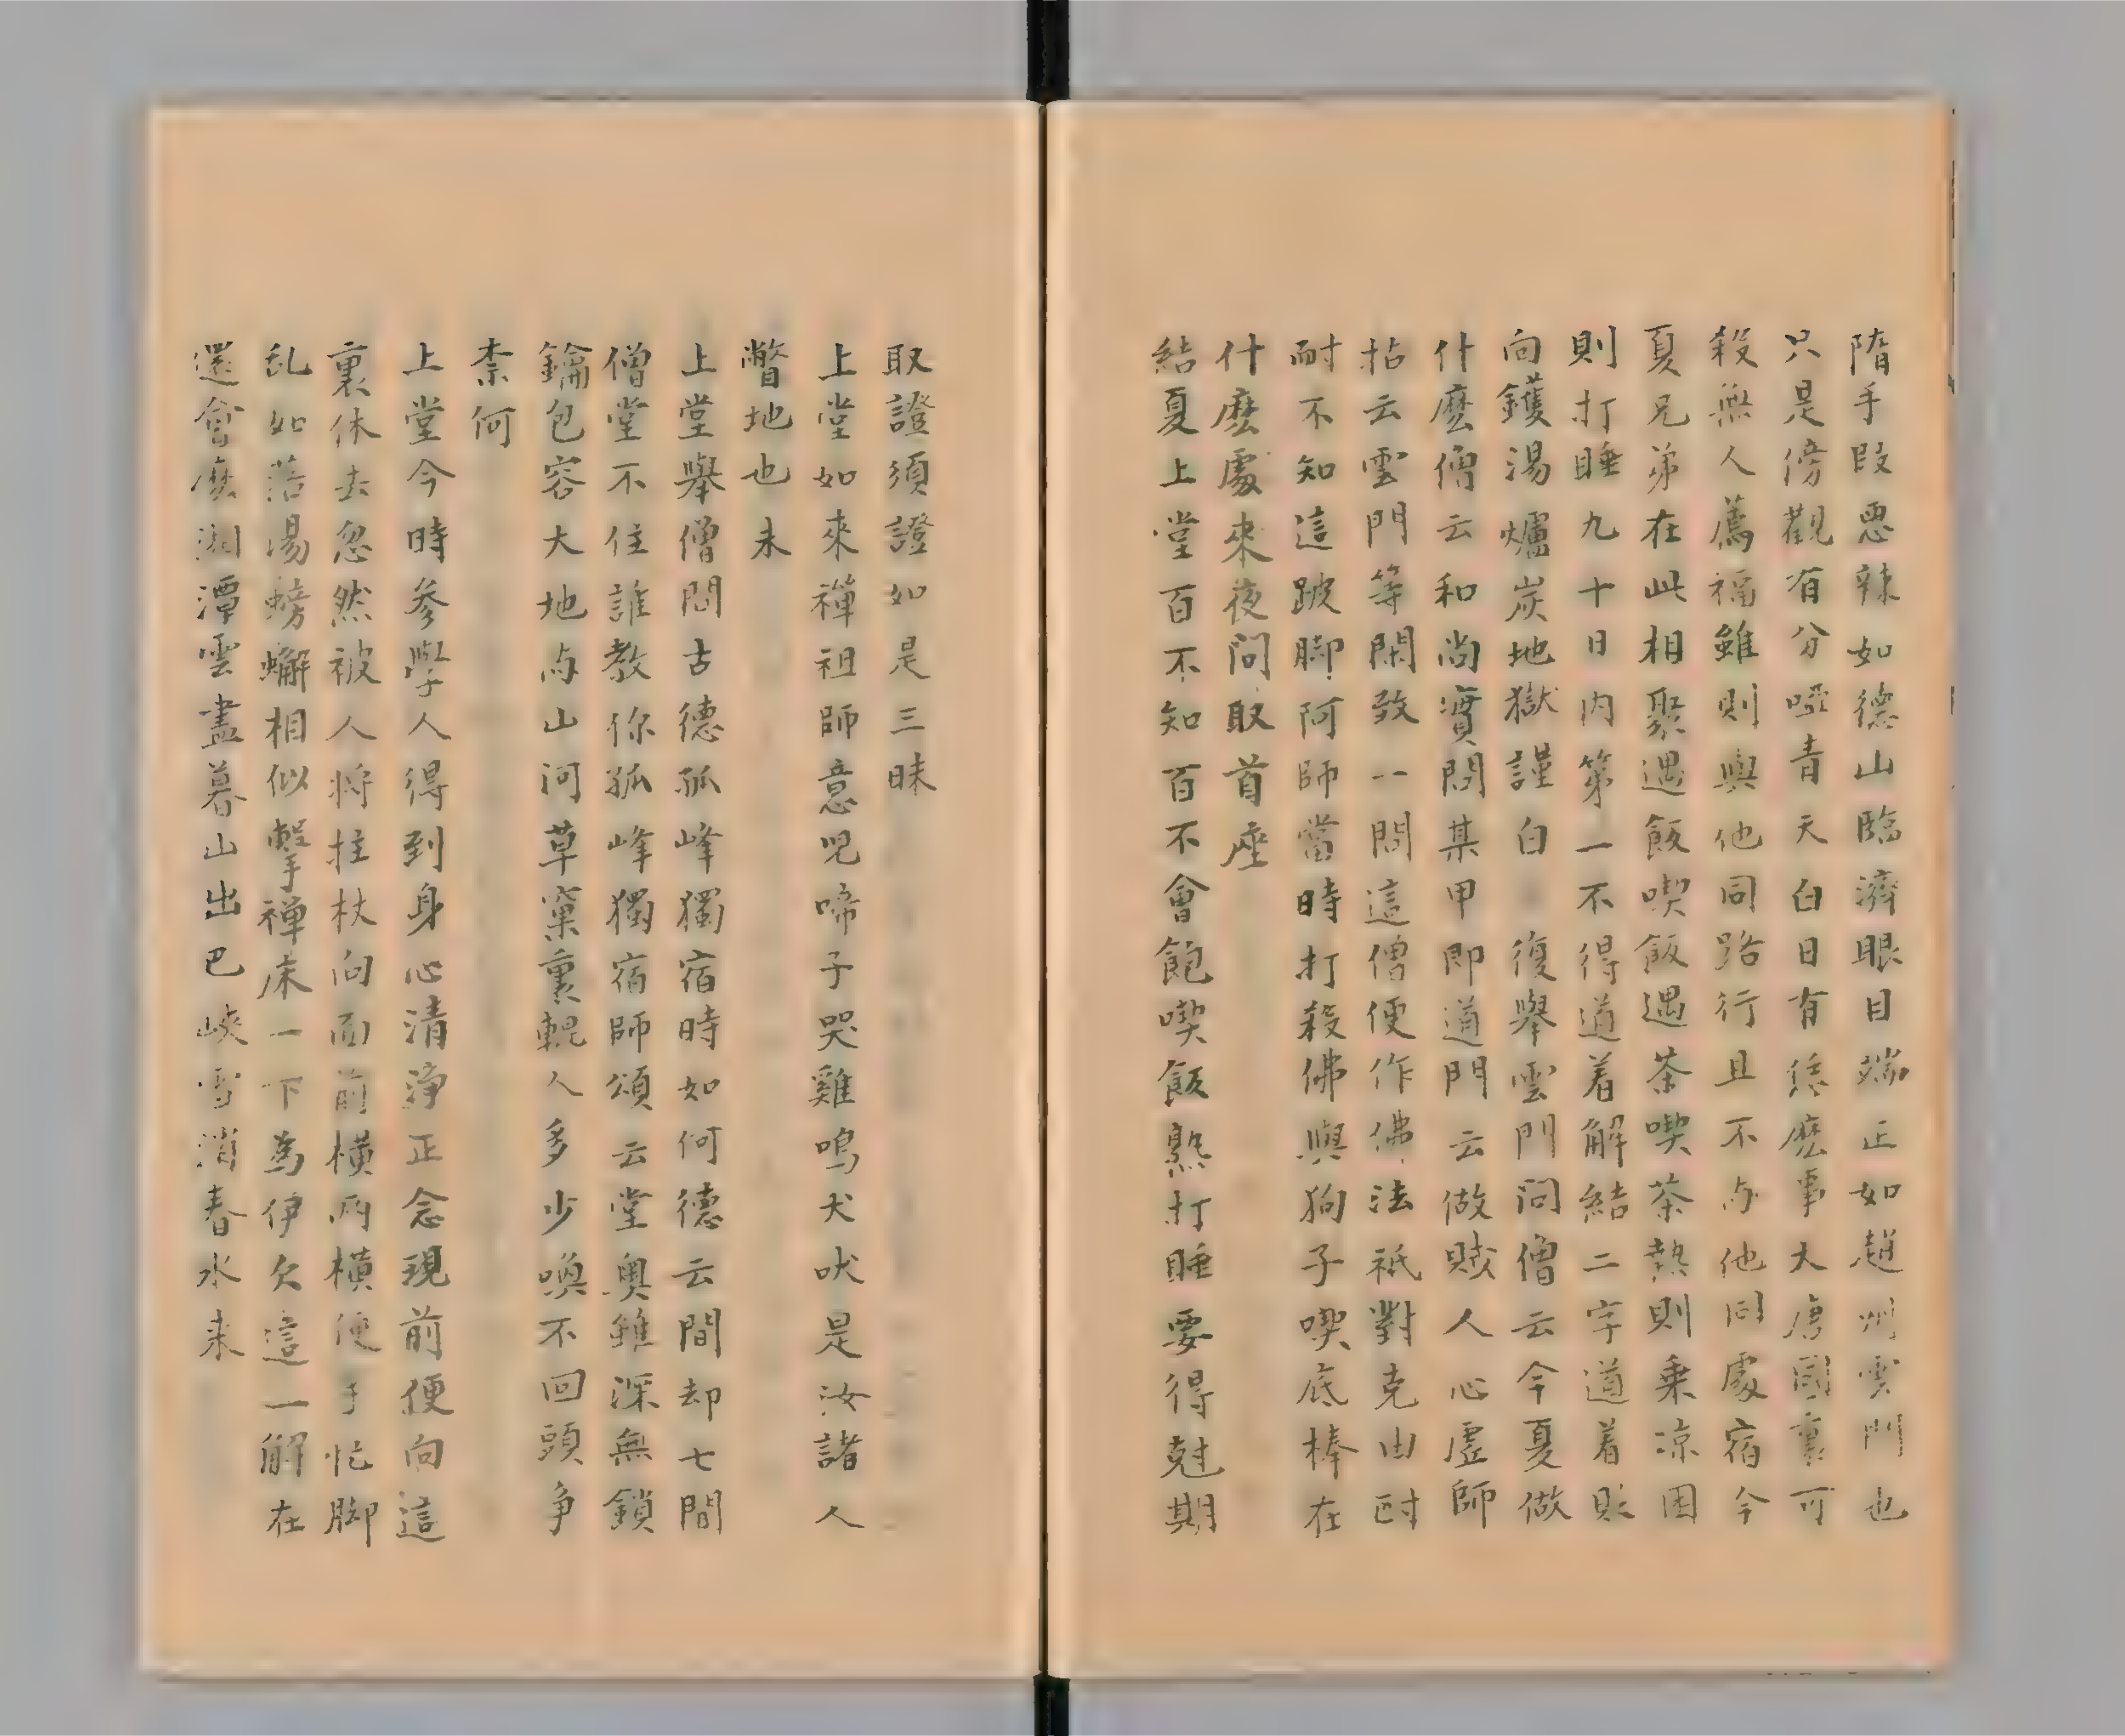 隋手段惡辣如德山臨濟眼目端正如趙州雲門也
只是傍觀有分啞青天白日有恁麽事大唐國裏可
殺無人薦福雖則與他同路行且不与他同處宿今
夏兄弟在此相聚遇飯喫飯遇茶喫茶熱則乘凉困
則打睡九十日内第一不得道着解結二字道着則
向鑊湯爐炭地獄謹白 復舉雲門問僧云今夏做
什麽僧云和尚實問某甲即道門云做賊人心虛師
拈云雲門等閑致一問這僧便作佛法祇對克由叵
耐不知這跛脚阿師當時打殺佛與狗子喫底棒在
什麽處來夜問取首座
結夏上堂百不知百不會飽喫飯熟打睡要得尅期
取證須證如是三昧
上堂如來禪祖師意児啼子哭雞鳴犬吠是汝諸人
瞥地也未
上堂舉僧問古德孤峰獨宿時如何德云間却七間
僧堂不住誰教你孤峰獨宿師頌云堂奥雖深無鎖
鑰包容大地与山河草窠裏輥人多少喚不回頭争
柰何
上堂今時參學人得到身心清淨正念現前便向這
裏休去忽然被人将拄杖向面前橫兩橫便手忙脚
乱如落湯螃蠏相似擊禅床一下為伊欠這一解在
還會麽湘潭雲盡暮山出巴峽雪消春水来